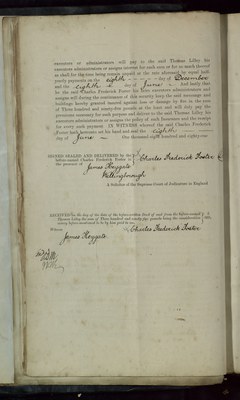 executors or administrators will pay to the said Thomas Lilley his
executors administrators or assigns interest for such sum or for so much thereof
as shall for the time being remain unpaid at the rate aforesaid by equal half-
yearly payments on the eighth day of December
and the eighth day of June And lastly that
he the said Charles Frederick Foster his heirs executors administrators and
assigns will during the continuance of this security keep the said messuage and
buildings hereby granted insured against loss or damage by fire in the sum
of Three hundred and ninety-five pounds at the least and will duly pay the
premiums necessary for such purpose and deliver to the said Thomas Lilley his
executors administrators or assigns the policy of such insurance and the receipts
for every such payment IN WITNESS whereof the said Charles Frederick
Foster hath hereunto set his hand and seal the eighth
day of June One thousand eight hundred and eighty-
SIGNED SEALED AND DELIVERED by the
before-named Charles Frederick Foster in
the presence of
Charles Frederick Foster
James Heygate
Wellingborough
A Solicitor of the Supreme Court of Judicature in England
RECEIVED on the day of the date of the before-written Deed of and from the before-named
Thomas Lilley the sum of Three hundred and ninety pounds being the consideration
money before-mentioned to be by him paid to me
Witness
Charles Frederick Foster
James Heygate